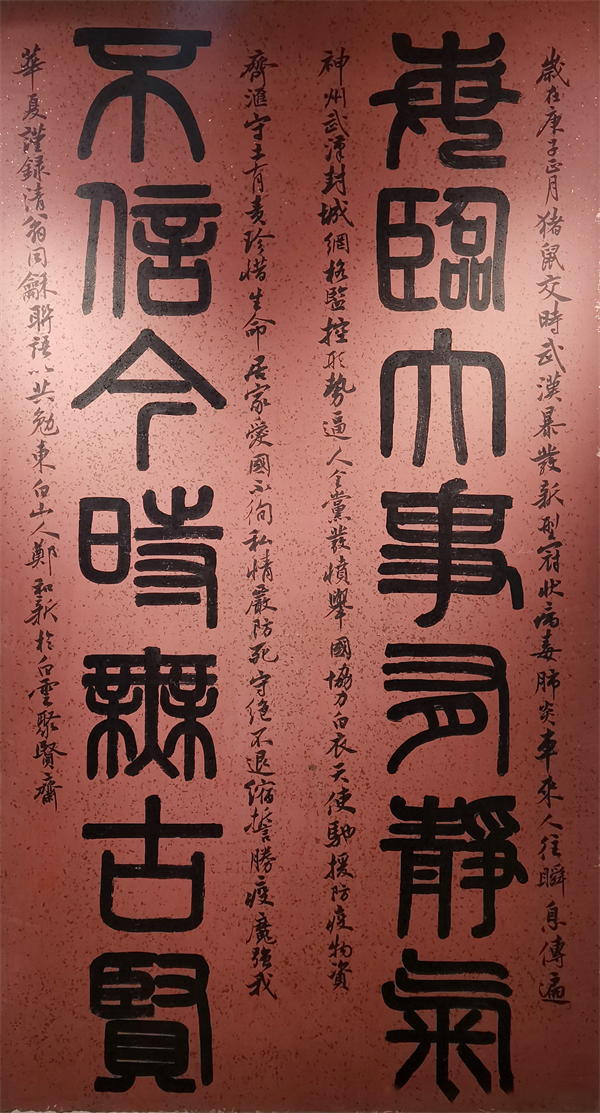 歲在庚子正月猪鼠交時武漢暴發新型冠狀病毒肺炎車來人往瞬息傳遍
每臨大事有靜氣
神州武漢封城網格監控形勢逼人全黨發憤舉國協力白衣天使馳援防疫物資
齊滙守土有責珍惜生命居家愛國不徇私情嚴防死守絕不退縮誓勝疫魔強我
不信今時無古賢
華夏謹録清翁同龢聯語以共勉東白山人鄭和新於白雲聚賢齋